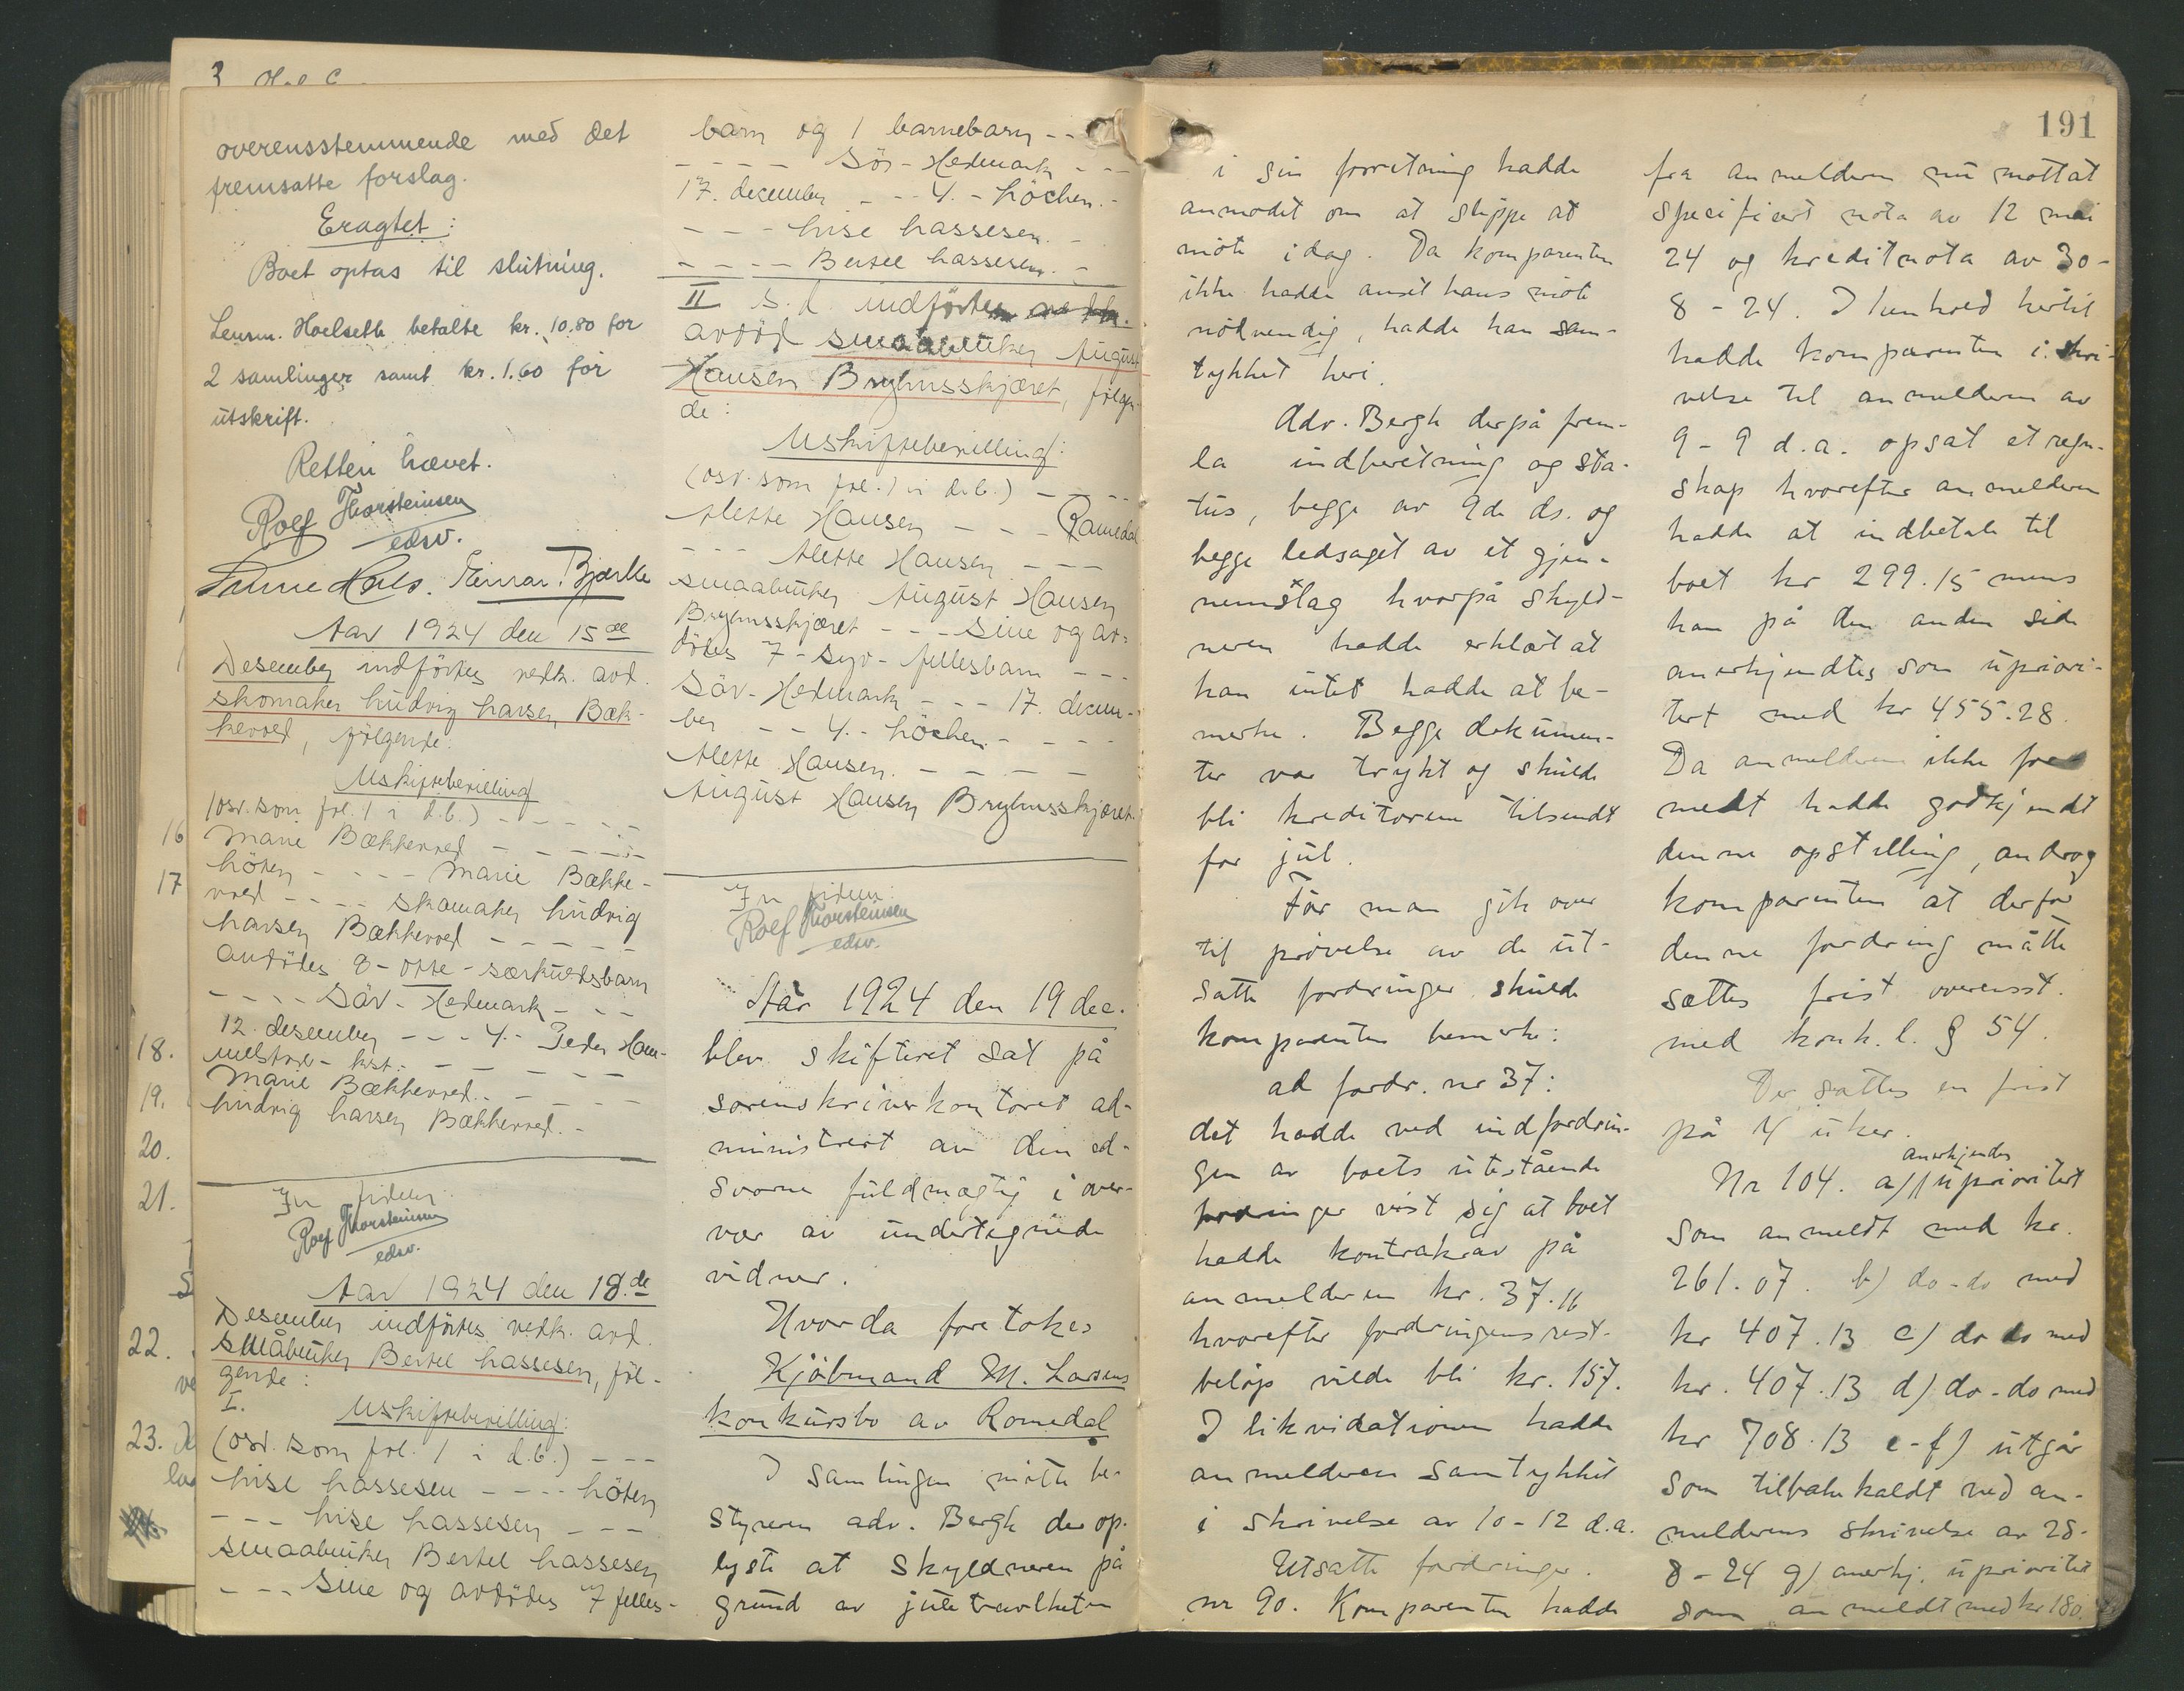 overensstemmende med det
fremsatte forslag.
Eragtet:
Boet optas til slutning.
Lensm. Hoelseth betalte kr. 10.80 for
2 samlinger samt kr. 1.60 for
utskrift.
Retten hævet.
Rolf Thorsteinsen
edsv.
Einar Bjerke
Aar 1924 den 15de
Desember indförtes vedk. avd.
skomaker Ludvig Larsen Bæk-
kevold, følgende:
Uskiftebevilling
(osv. som fol. 1 i d.b.) - - - - -
Marie Bækkevold - - - - -
Löten - - - - Marie Bække-
vold - - - - skomaker Ludvig
Larsen Bækkevold - - - - -
avdödes 8 - otte - særkuldsbarn
- - - - Sör-Hedmark - - -
12. desember - - - 4. - Peder Ham-
melstad - kst. - - - - -
Marie Bækkevold. - - - - -
Ludvig Larsen Bækkevold. -
In fidem:
Rolf Thorsteinsen
edsv.
Aar 1924 den 18.de
Desember indförtes vedk. avd.
småbruker Bertel Lassesen, föl-
gende:
I. Uskiftebevilling:
(osv. som fol. 1 i d.b.) - - -
Lise Lassesen - - - - Löten
- - - Lise Lassesen - - -
smaabruker Bertel Lassesen
- - - sine og avdödes 7 felles-
barn og 1 barnebarn - -
- - - - Sör-Hedmark - - -
17. december - - - 4. - Löchen. -
- - - Lise Lassesen. -
- - - - Bertel Lassesen. -
II s.d. indförtes
avdöd smaabruker August
Hansen Bryhnsskjæret, følgen-
de:
Uskiftebevilling:
(osv. som fol. 1 i d.b.) - - - -
Mette Hansen - - - Romedal
- - - Mette Hansen - - -
smaabruker August Hansen
Bryhnsskjæret - - - sine og av-
dödes 7 - syv - fellesbarn - - -
Sör-Hedmark - - - 17. decem-
ber - - 4. - Löchen. - - - -
Mette Hansen. - - - - -
August Hansen Bryhnsskjæret.
In fidem:
Rolf Thorsteinsen
edsv.
År 1924 den 19 dec.
blev skifteret sat på
sorenskriverkontoret ad-
ministrert av den ed-
svorne fuldmægtig i over-
vær av undertegnede
vidner.
Hvorda foretokes
Kjöbmand M. Larsens
konkursbo av Romedal
I samlingen mötte be-
styreren adv. Bergh der op-
lyste at skyldneren på
grund av juletravlheten
191
i sin forretning hadde
anmodet om at slippe at
möte idag. Da komparenten
ikke hadde anset hans möte
nödvendig, hadde han sam-
tykket heri.
Adv. Bergh derpå frem-
la indberetning og sta-
tus, begge av 9de ds. og
begge ledsaget av et gjen-
nemslag hvorpå skyld-
neren hadde erklært at
han intet hadde at be-
merke. Begge dokumen-
ter var trykt og skulde
bli kreditorene tilsendt
før jul.
Før man gik over
til prövelse av de ut-
satte fordringer skulde
komparenten bemerke:
ad fordr. nr 37:
det hadde ved indfordrin-
gen av boets utestående
fordringer vist sig at boet
hadde kontrakrav på
anmelderen kr. 37.16
hvorefter fordringens rest-
beløp vilde bli kr. 157.
I likvidationen hadde
anmelderen samtykket
i skrivelse av 10-12 d.a.
Utsatte fordringer.
nr 90. Komparenten hadde
fra anmelderen nu mottat
specificert nota av 12 mai
24 og kreditnota av 30-
8-24. I henhold hertil
hadde komparenten i skri-
velse til anmelderen av
9-9 d.a. opsat et regn-
skap hvorefter anmelderen
hadde at indbetale til
boet kr 299.15 mens
han på den anden side
anerkjendtes som upriori-
tert med kr 455.28.
Da anmelderen ikke for-
melt hadde godkjendt
denne opstilling, androg
komparenten at derfor
denne fordring måtte
sættes frist overensst.
med konk.l. § 54.
Der sattes en frist
på 4 uker.
anerkjendes
Nr 104. a) uprioritert
som anmeldt med kr.
261.07. b) do-do med
kr 407.13 c) do do med
kr. 407.13 d) do-do med
kr 708.13 e-f) utgår
som tilbakekaldt ved an-
melderens skrivelse av 28-
8-24 g) anerkj. uprioritert
som anmeldt med kr 180.
16
17
18.
19.
20.
21.
22.
23.